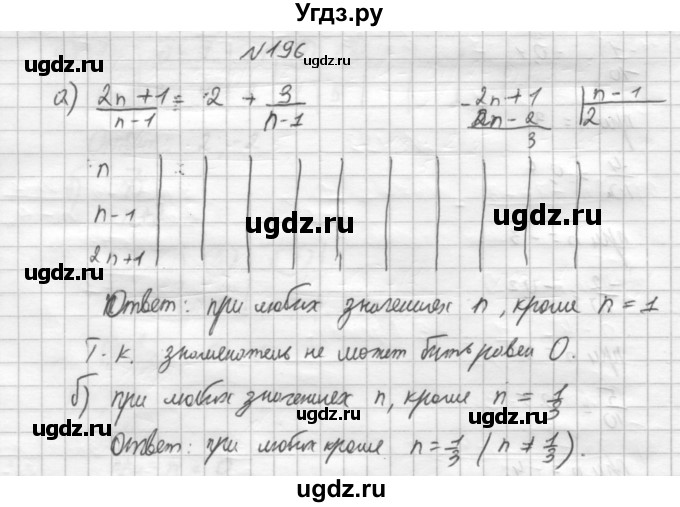 Угдз.ру
№196
ugdz.ru ugdz.ru
а) (2n+1)/(n-1) = 2 + 3/(n-1)
-2n+1 | n-1
2n-2 | 2
3
ugdz.ru
n
n-1
ugdz.ru ugdz.ru
2n+1
ugdz.ru
Ответ: при любых значениях n, кроме n = 1
ugdz.ru
Т.к. знаменатель не может быть равен 0.
б) при любых значениях n, кроме n = 1/3
ugdz.ru ugdz.ru
Ответ: при любых кроме n = 1/3 (n ≠ 1/3).
ugdz.ru